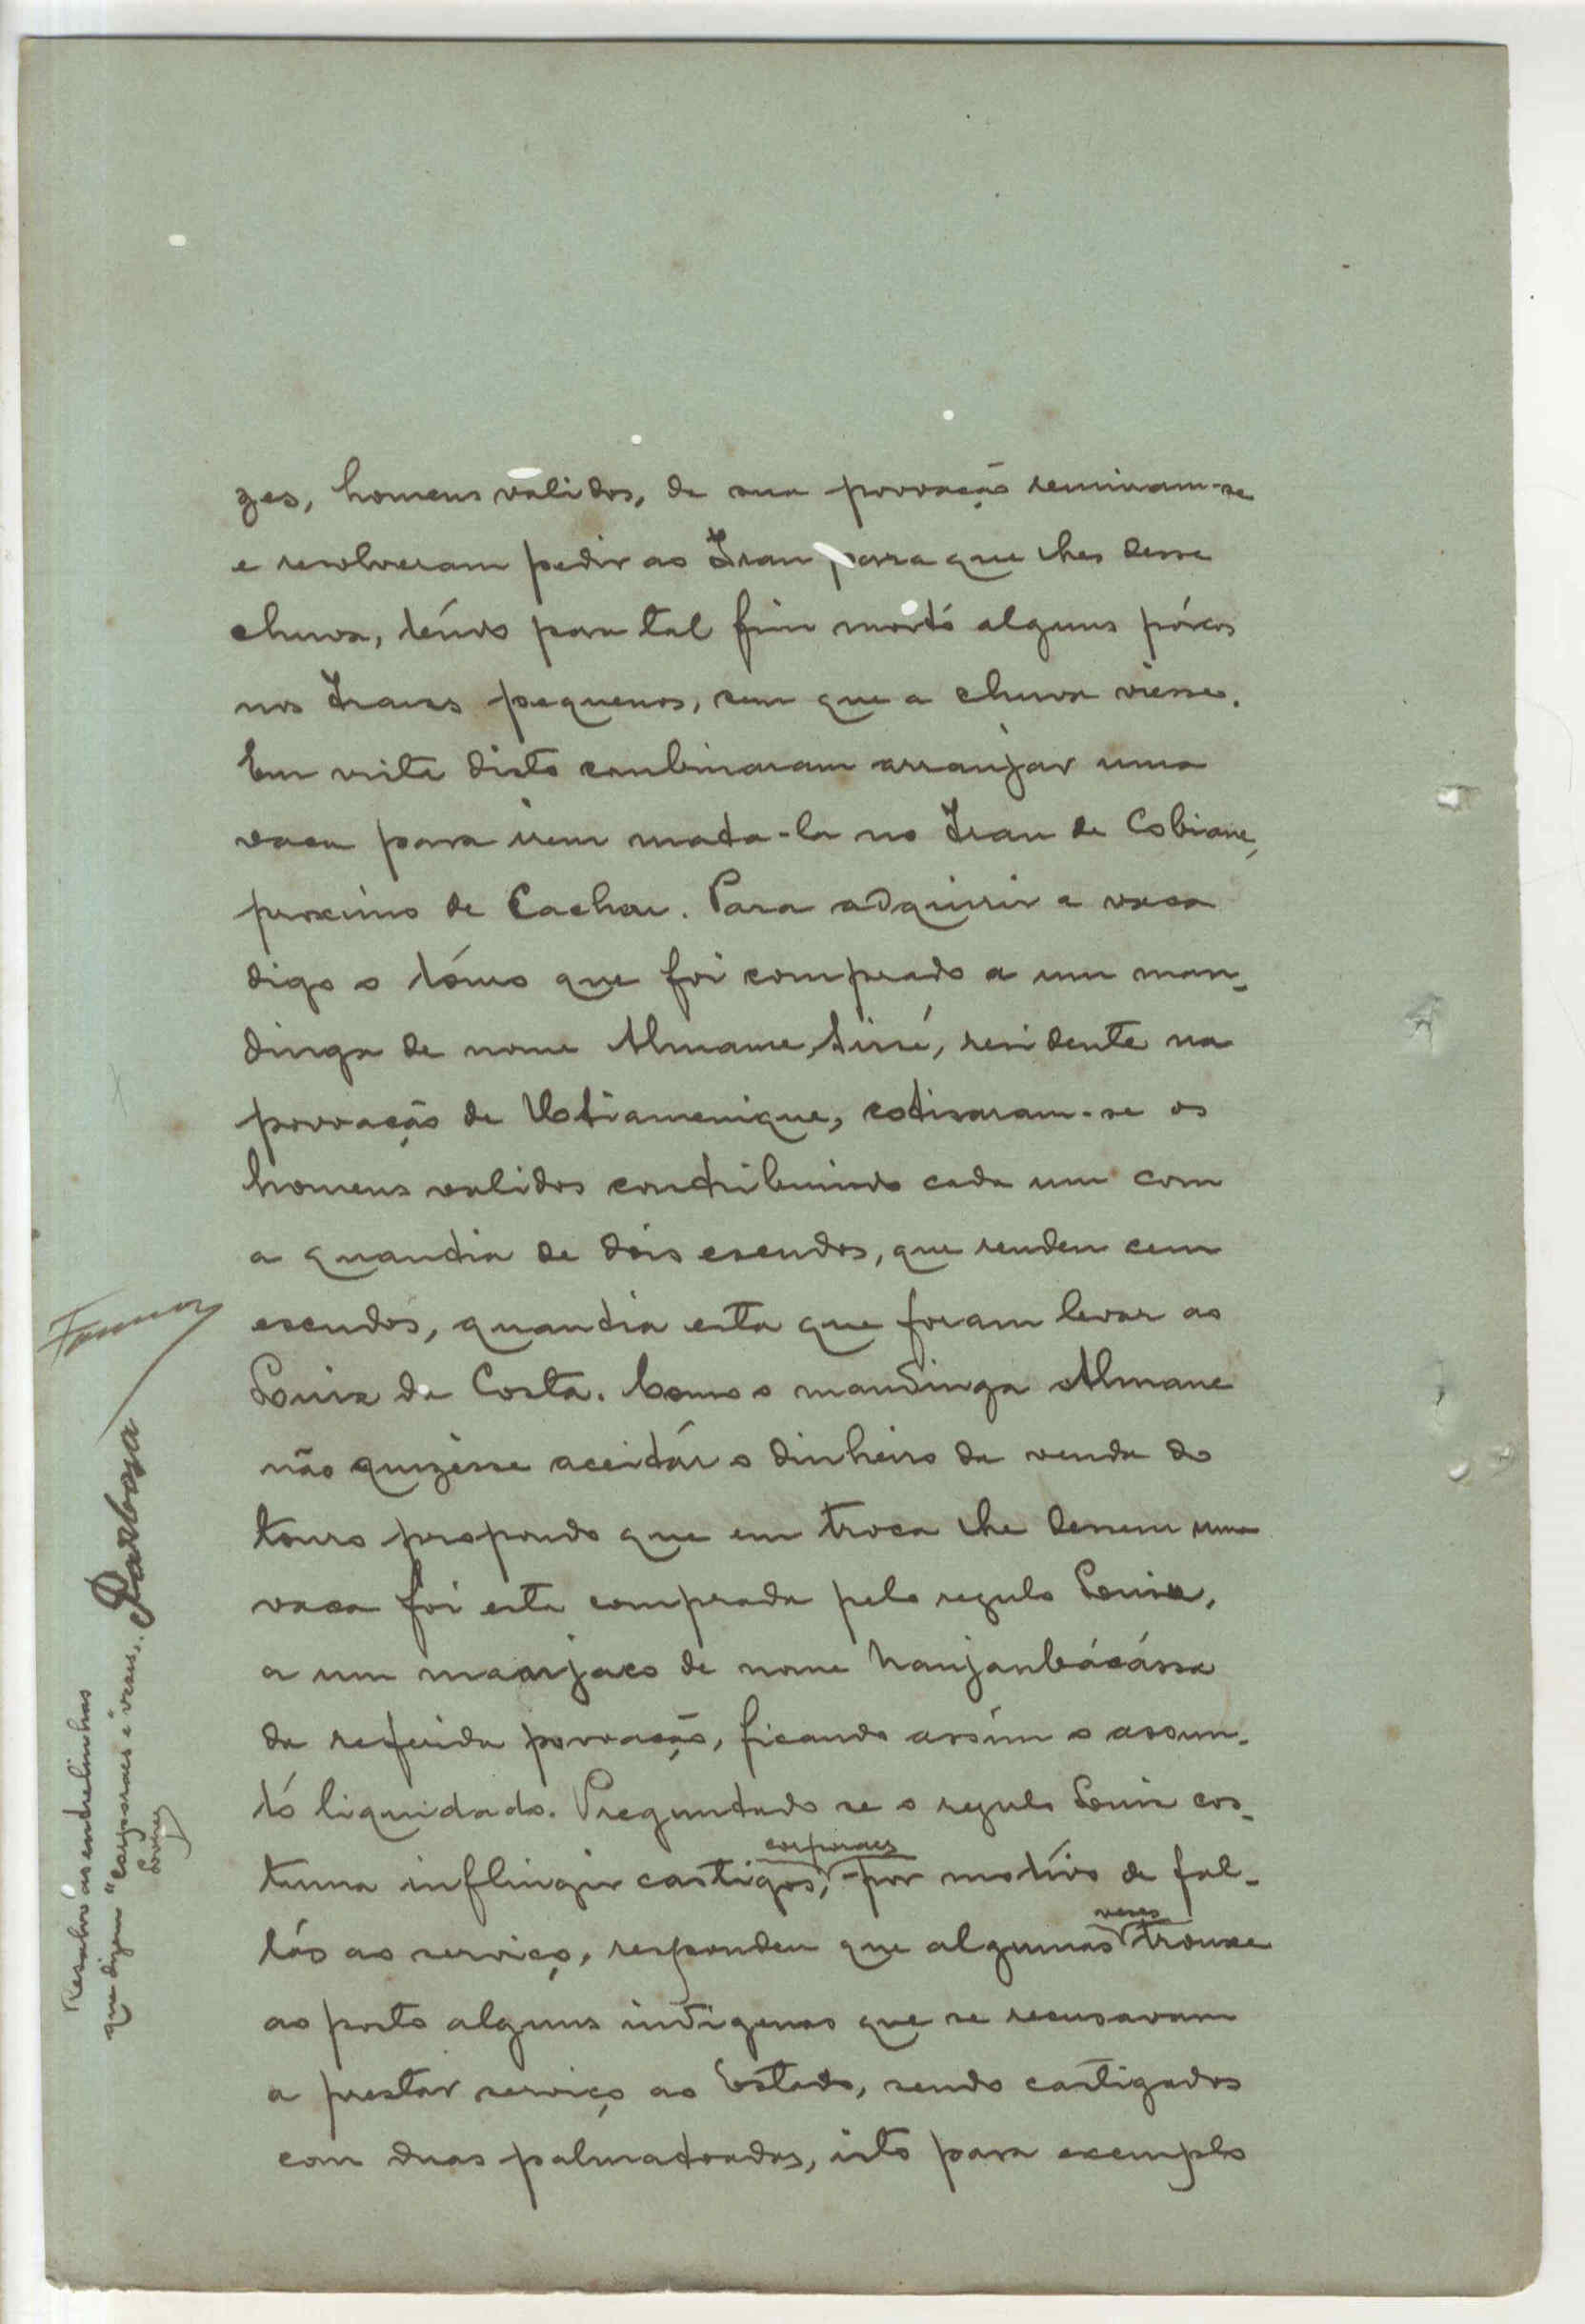 zes, homens validos, de sua povoação reuniram-se
e resolveram pedir ao Iran para que lhes desse
chuva, téndo para tal fim mortó alguns pórcos
nos Irans pequenos, sem que a chuva viesse.
Em vista disto combinaram arranjar uma
vaca para irem mata-la no Iran de Cobiane,
proximo de Cacheu. Para adquirir a vaca
digo o tóuro que foi comprado a um man-
dinga de nome Almame, residente na
povoação de cotisaram-se os
homens validos contribuindo cada um com
a quantia de dois escudos, que rendeu cem
escudos, quantia esta que foram levar ao
Luiz da Costa. Como o mandinga Almame
não quizésse aceitár o dinheiro da venda do
touro propondo que em troca lhe dessem uma
vaca foi esta comprada pelo regulo Luiz,
a um manjaco de nome
da referida povoação, ficando assim o assun-
tó liquidado. Preguntado se o regulo Luiz cos-
tuma inflingir castigos, corporaes por motivo de fal-
tás ao serviço, respondeu que algumas vezes trouxe
ao posto alguns indigenas que se recusavam
a prestar serviço ao Estado, sendo castigados
com duas palmatoadas, isto para exemplo
Resalvo as entrelinhas
que dizem "corporaes e "vezes".
Barbosa